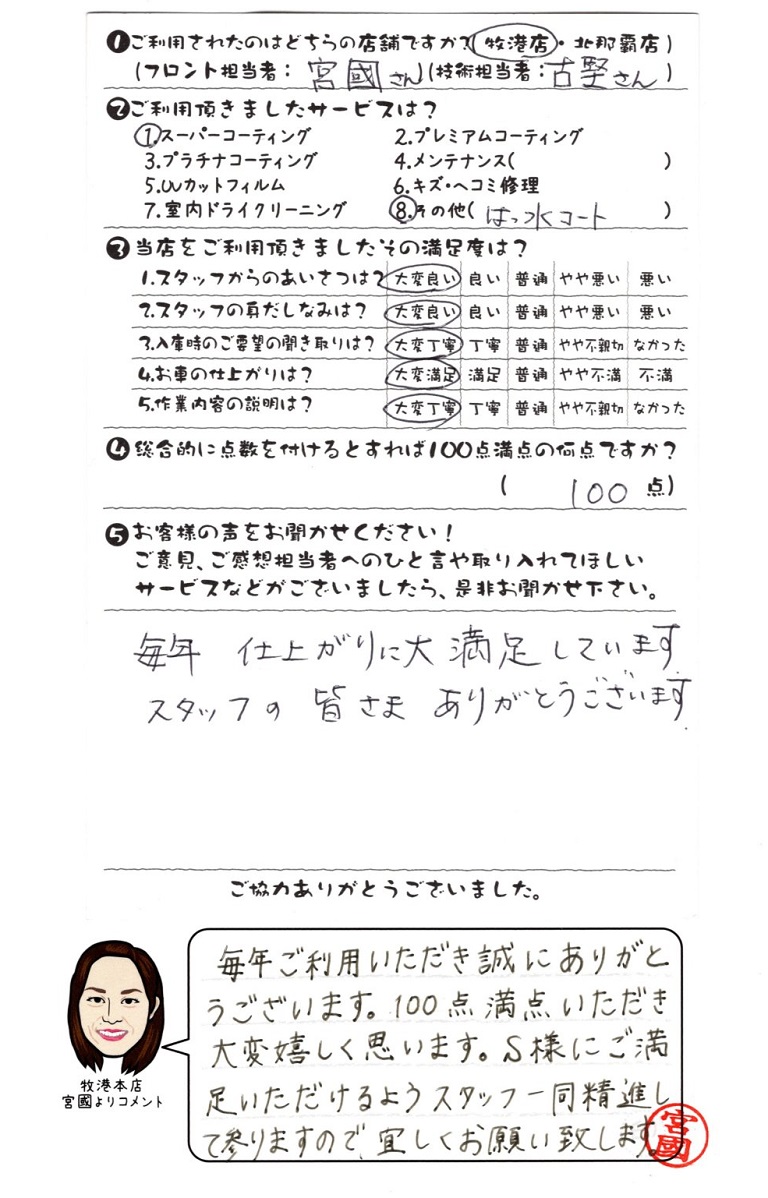 ❶ご利用されたのはどちらの店舗ですか?(牧港店・北那覇店)
(フロント担当者:宮國さん)(技術担当者:古堅さん)
❷ご利用頂きましたサービスは?
1.スーパーコーティング 2.プレミアムコーティング
3.プラチナコーティング 4.メンテナンス( )
5.UVカットフィルム 6.キズ・ヘコミ修理
7.室内ドライクリーニング 8.その他(はっ水コート)
❸当店をご利用頂きましたその満足度は?
1.スタッフからのあいさつは? 大変良い 良い 普通 やや悪い 悪い
2.スタッフの身だしなみは? 大変良い 良い 普通 やや悪い 悪い
3.入庫時のご要望の聞き取りは? 大変丁寧 丁寧 普通 やや不親切 なかった
4.お車の仕上がりは? 大変満足 満足 普通 やや不満 不満
5.作業内容の説明は? 大変丁寧 丁寧 普通 やや不親切 なかった
❹総合的に点数を付けるとすれば100点満点の何点ですか?
(100点)
❺お客様の声をお聞かせください!
ご意見、ご感想担当者へのひと言や取り入れてほしい
サービスなどがございましたら、是非お聞かせ下さい。
毎年 仕上がりに大満足しています
スタッフの皆さま ありがとうございます
ご協力ありがとうございました。
毎年ご利用いただき誠にありがと
うございます。100点満点いただき
大変嬉しく思います。S様にご満
足いただけるようスタッフ一同精進し
て参りますので、宜しくお願い致します。
宮國
牧港本店
宮國よりコメント